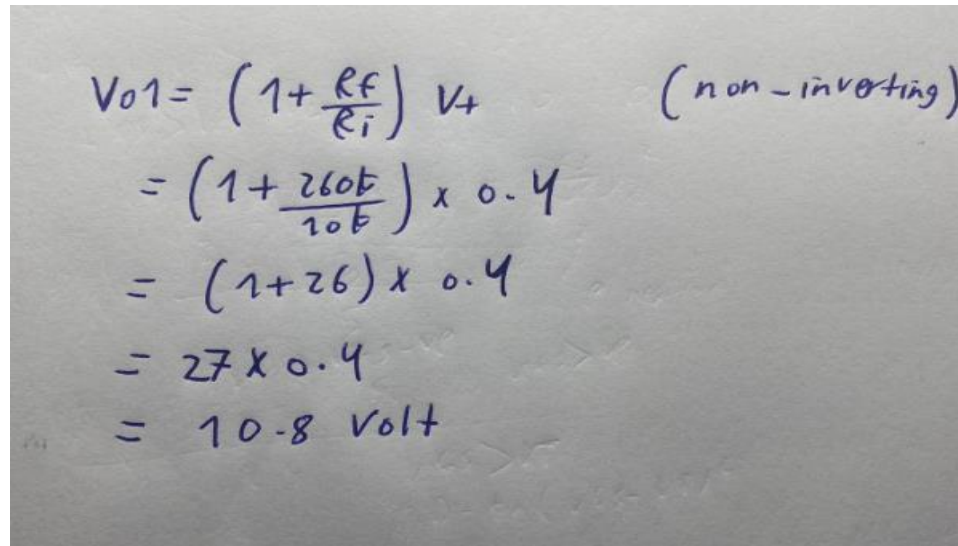 Vo1 = (1 + Rf/Ri) V+ (non-inverting)
= (1 + 260k/10k) x 0.4
= (1+26) x 0.4
= 27 x 0.4
= 10.8 Volt